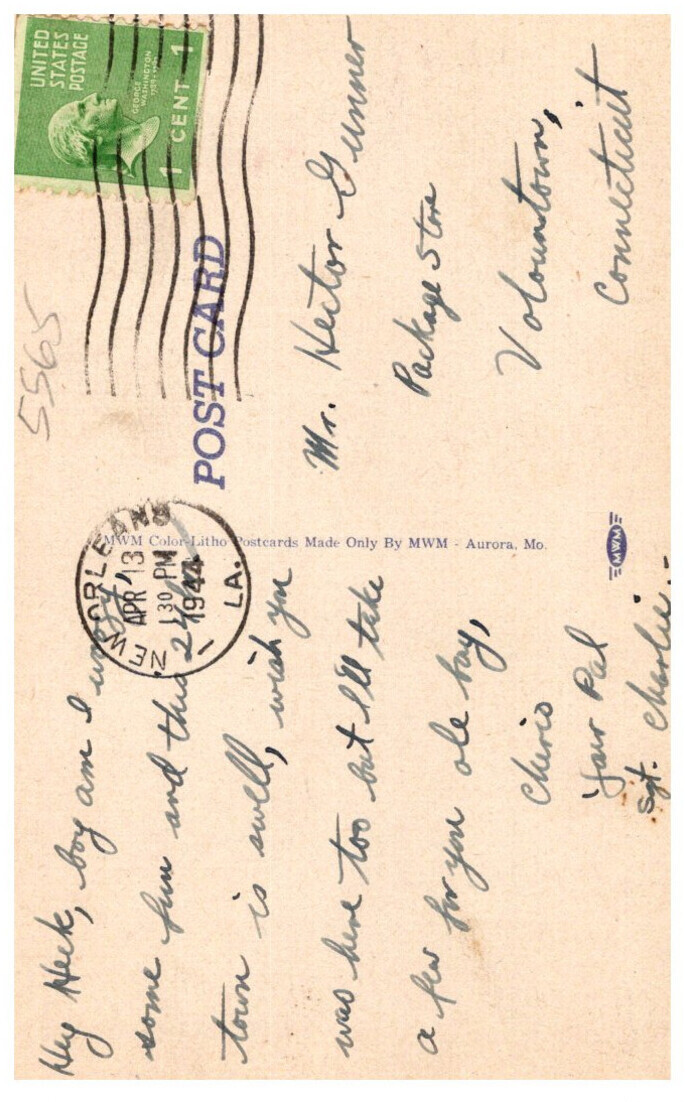 Hey Heck, boy am I
some fun and this
town is swell, wish you
was here too but I'll take
a few for you ole boy,
Cherio
Your Pal
Sgt. Charlie.-
NEW ORLEANS
APR 13
130 PM
1944
LA.
MWM Color-Litho Postcards Made Only By MWM - Aurora, Mo.
MWM
5565
UNITED
STATES
POSTAGE
GEORGE
WASHINGTON
1 CENT 1
POST CARD
Mr. Hector Gunner
Package Store
Volountown,
Connecticut